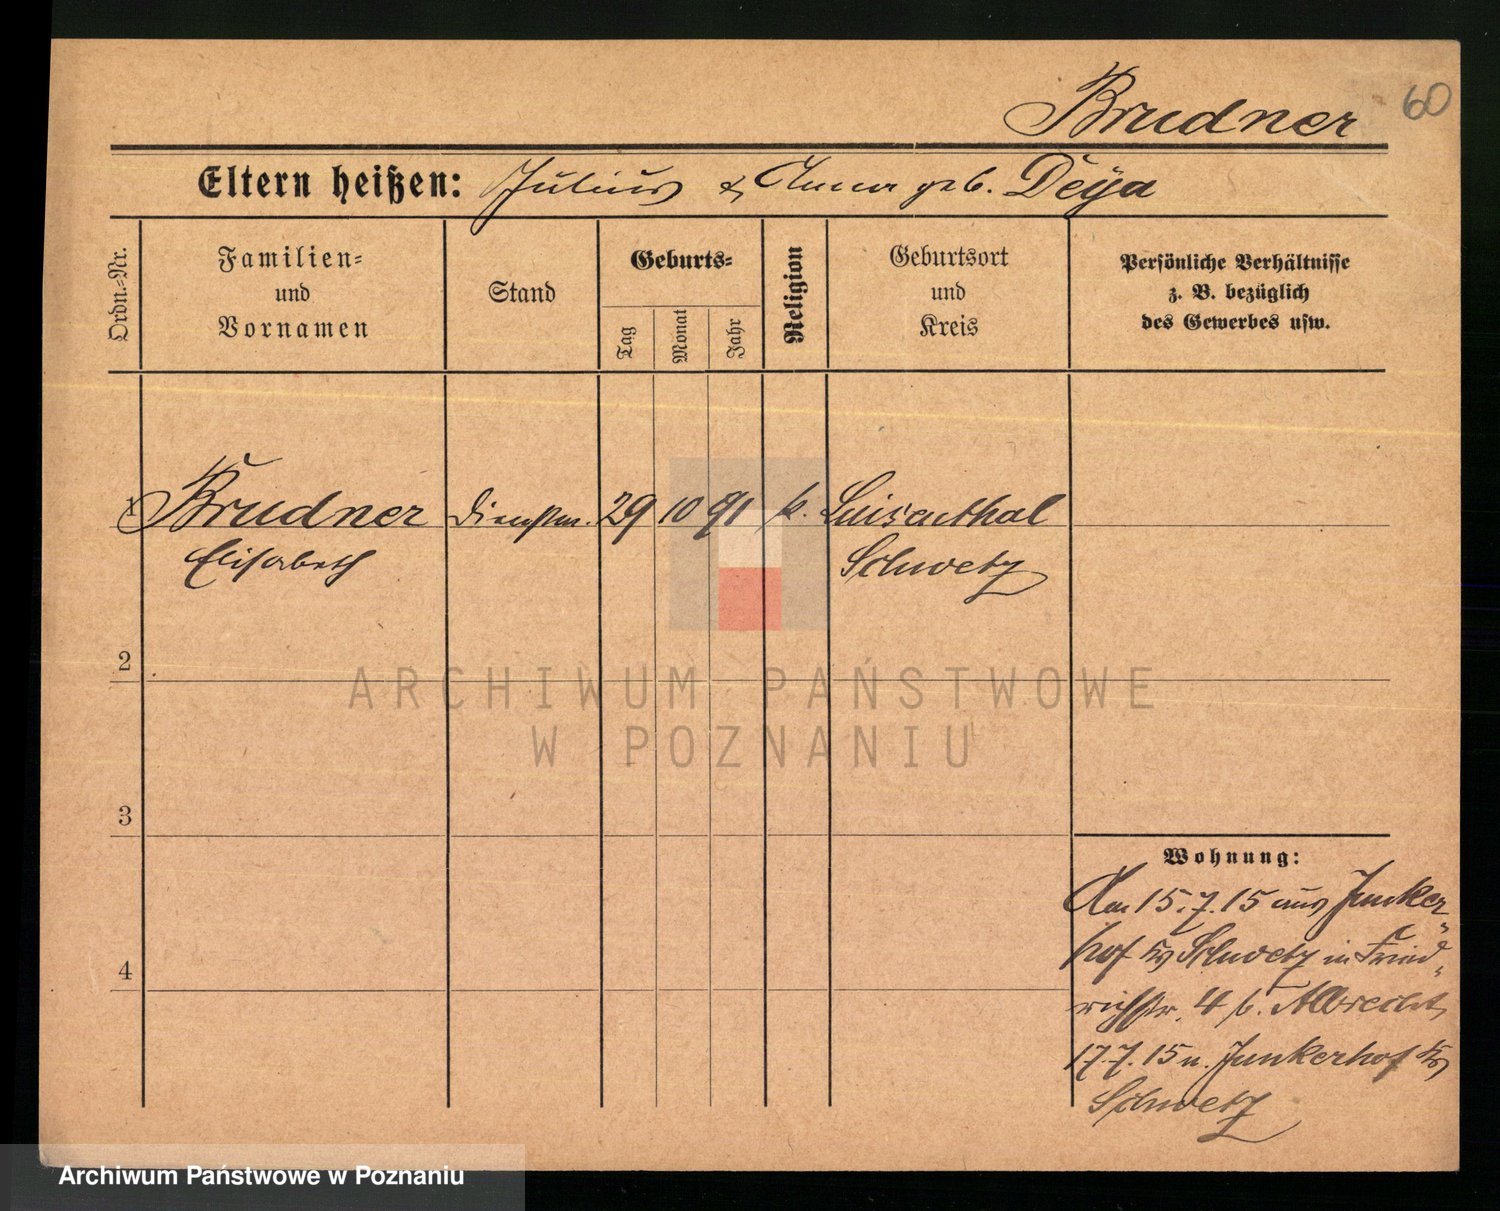 Brudner
60
Eltern heißen: Julius & Anna geb. Deÿa
Ordn.-Nr.
Familien-
und
Vornamen
Stand
Geburts-
Tag
Monat
Jahr
Religion
Geburtsort
und
Kreis
Persönliche Verhältnisse
z. B. bezüglich
des Gewerbes usw.
1 Brudner Dienstm. 29 10 91 k. Luisenthal
Elisabeth Schwetz
2
3
4
Wohnung:
Am 15.7.15 aus Junker-
hof Kr Schwetz in Fried-
richstr. 4 b. Albrecht
17.7.15 n. Junkerhof Kr
Schwetz
ARCHIWUM PAŃSTWOWE
W POZNANIU
Archiwum Państwowe w Poznaniu